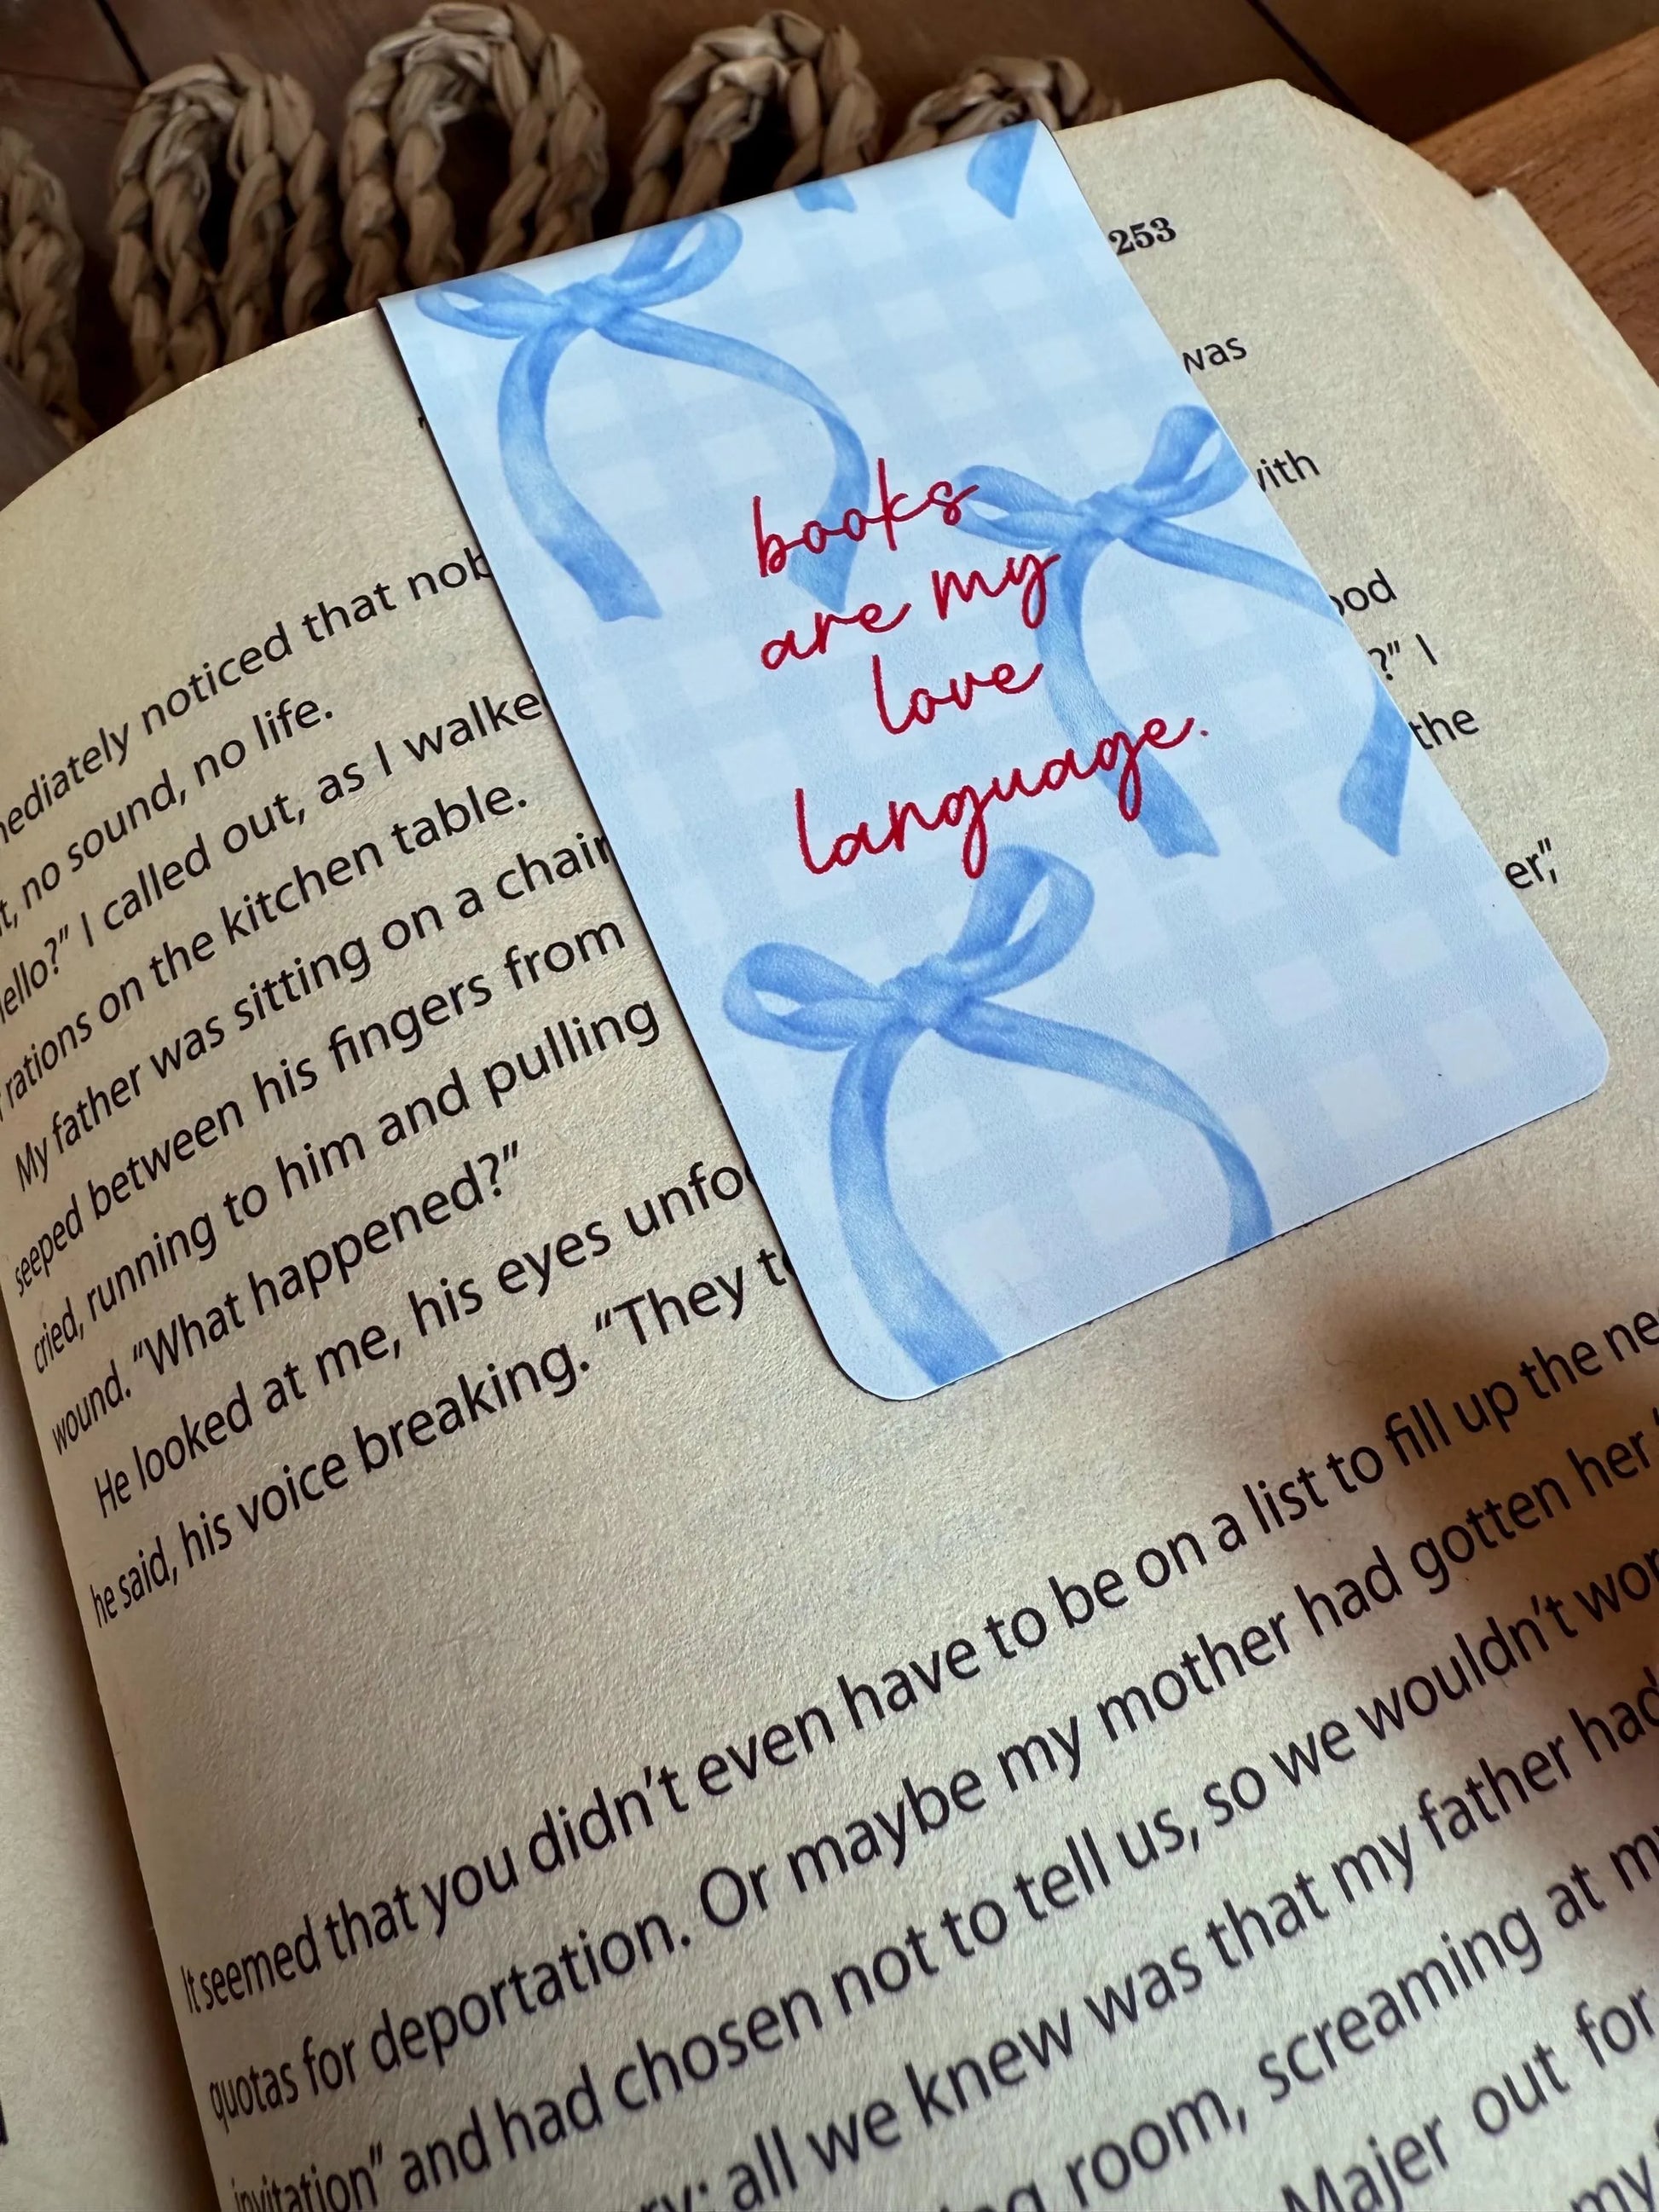 253
was
with
immediately noticed that
no sound, no life.
I called out, as I
rations on the kitchen table.
My father was sitting on a chair
seeped between his fingers from
cried, running to him and pulling
wound. “What happened?”
He looked at me, his eyes
he said, his voice breaking. “They
?” I
the
er,”
books
are my
love
language.
It seemed that you didn’t even have to be on a list to fill up the
quotas for deportation. Or maybe my mother had gotten her
invitation” and had chosen not to tell us, so we wouldn’t
all we knew was that my father had
room, screaming at
Majer out for
my